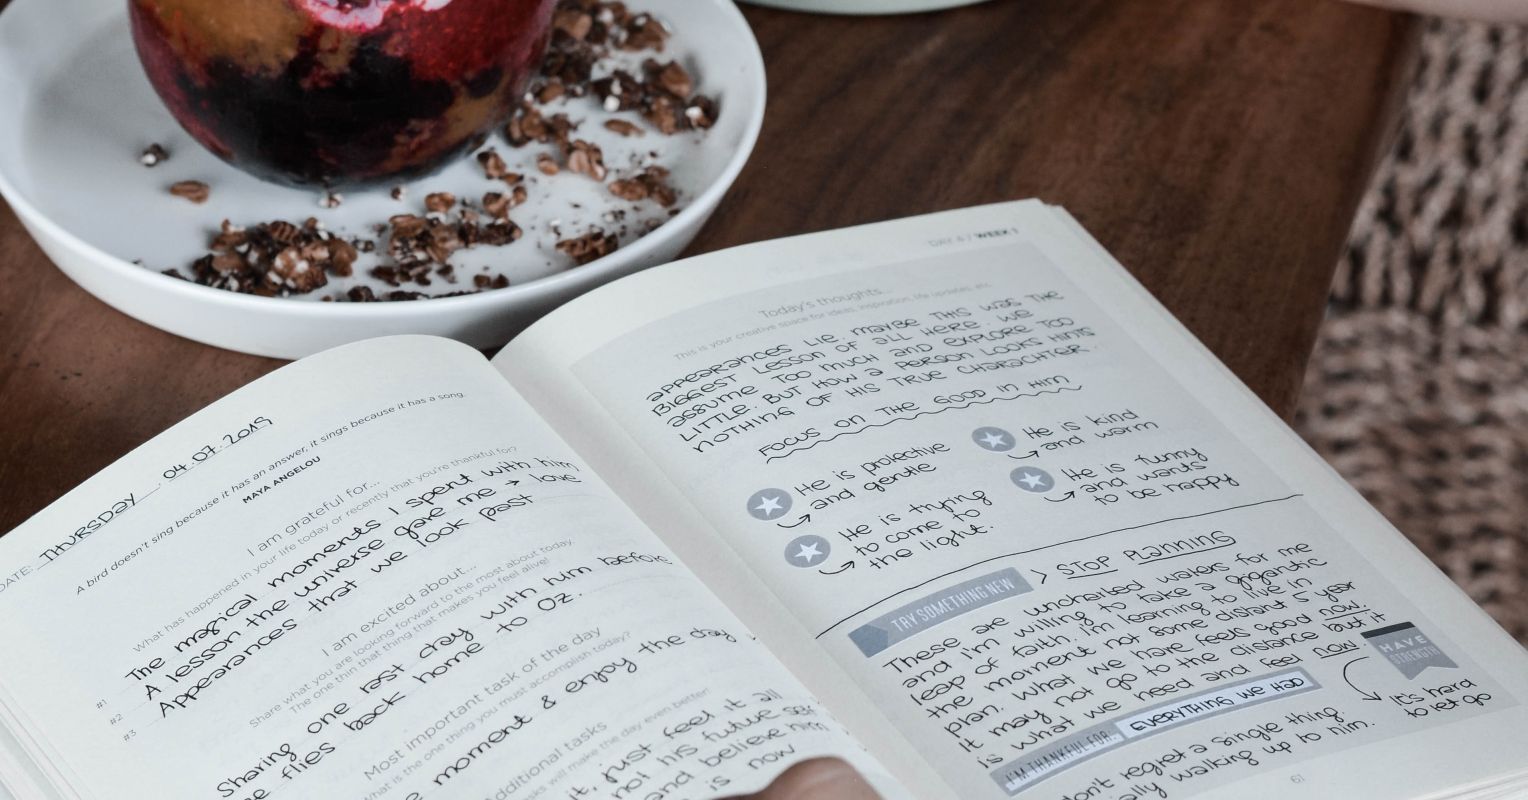 DATE: THURSDAY 04.07.2019
A bird doesn't sing because it has an answer, it sings because it has a song.
MAYA ANGELOU
I am grateful for...
What has happened in your life today or recently that you're thankful for?
#1 The magical moments I spent with him
#2 A lesson the universe gave me → love
#3 Appearances that we look past
I am excited about...
Share what you are looking forward to the most about today.
The one thing that makes you feel alive!
Sharing one last day with him before
he flies back home to Oz.
Most important task of the day
What is the one thing you must accomplish today?
moment & enjoy the day
Additional tasks
will make the day even better!
it, just feel it all
not his future self
and believe him
is now
DAY 4 / WEEK 1
Today's thoughts...
This is your creative space for ideas, inspiration, life updates, etc.
APPEARANCES LIE. MAYBE THIS WAS THE
BIGGEST LESSON OF ALL HERE. WE
ASSUME TOO MUCH AND EXPLORE TOO
LITTLE. BUT HOW A PERSON LOOKS HINTS
NOTHING OF HIS TRUE CHARACHTER.
FOCUS ON THE GOOD IN HIM
He is protective
and gentle
He is kind
and warm
He is trying
to come to
the light.
He is funny
and wants
to be happy
TRY SOMETHING NEW > STOP PLANNING
These are uncharted waters for me
and I'm willing to take a gigantic
leap of faith. I'm learning to live in
the moment not some distant 5 year
plan. What we have feels good now.
It may not go to the distance but it
is what we need and feel now
HAVE
STRENGTH
It's hard
to let go
I'M THANKFUL FOR... EVERYTHING WE HAD
don't regret a single thing
walking up to him.
61